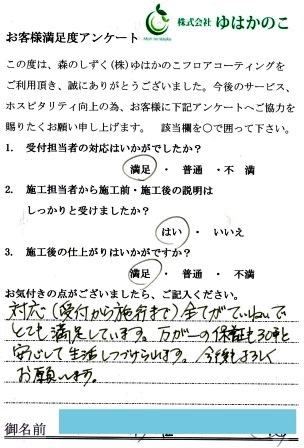 株式会社 ゆはかのこ
お客様満足度アンケート
この度は、森のしずく(株)ゆはかのこフロアコーティングを
ご利用頂き、誠にありがとうございました。今後のサービス、
ホスピタリティ向上の為、お客様に下記アンケートへご協力を
賜りたくお願い申し上げます。 該当欄を○で囲って下さい。
1. 受付担当者の対応はいかがでしたか?
満足 ・ 普通 ・不 満
2. 施工担当者から施工前・施工後の説明は
しっかりと受けましたか?
はい ・ いいえ
3. 施工後の仕上がりはいかがですか?
満足 ・ 普通 ・ 不満
お気付きの点がございましたら、ご記入ください。
対応(受付から施行まで)全てがていねいで
とても満足しています。万が一の保証も30年と
安心して生活しつづけられます。今後もよろしく
お願いします。
御名前